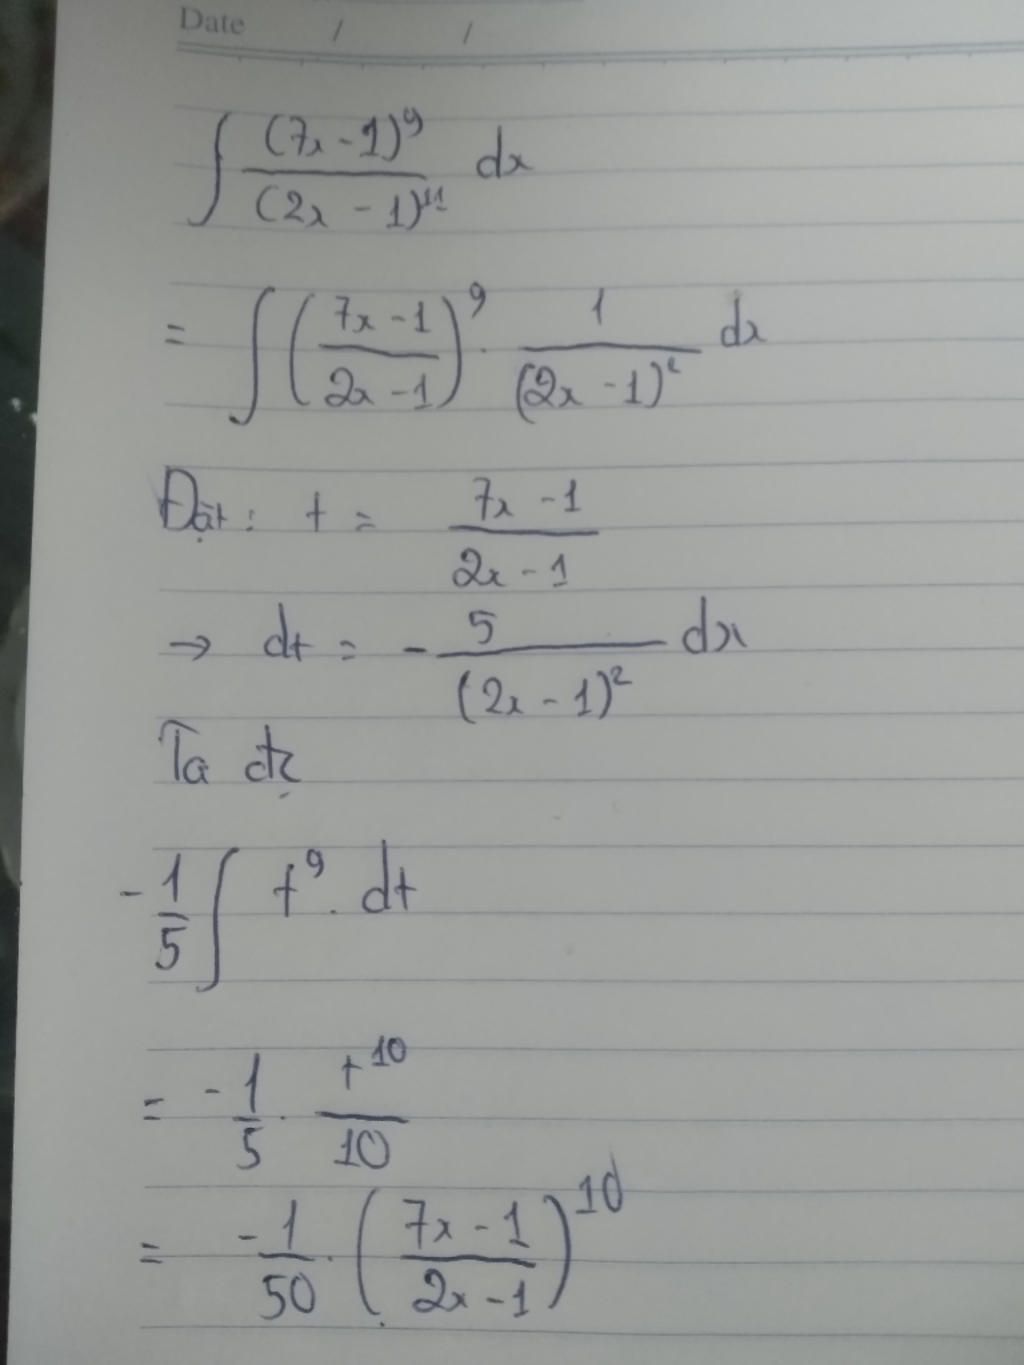 Date / /
∫ (7x - 1)^9 / (2x - 1)^11 dx
= ∫ ((7x - 1) / (2x - 1))^9 . 1 / (2x - 1)^2 dx
Đặt: t = (7x - 1) / (2x - 1)
→ dt = - 5 / (2x - 1)^2 dx
Ta đc
- 1/5 ∫ t^9 . dt
= - 1/5 . t^10 / 10
= - 1/50 . ((7x - 1) / (2x - 1))^10